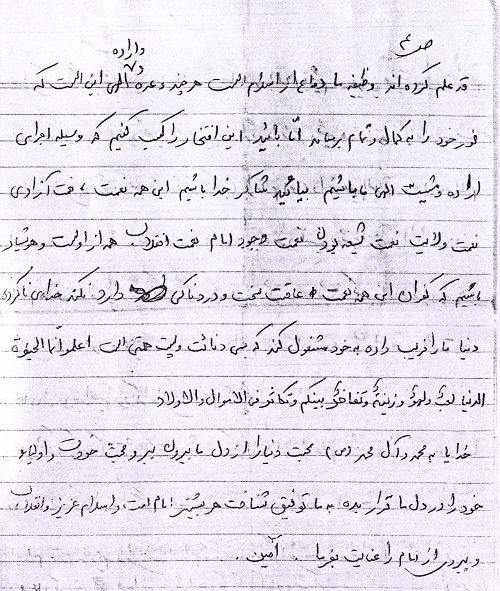 ص ۴
و اراده
قد علم کرده اند وظیفه ما دفاع از اسلام است هر چند وعده و الهی این است که
نور خود را به کمال و تمام برساند اما بیائید این افتخار را کسب کنیم که وسیله اجرای
اراده و مشیت الهی ما باشیم بیائید شاکر خدا باشیم این همه نعمت ، نعمت آزادی
نعمت ولایت نعمت شیعه بودن نعمت وجود امام نعمت انقلاب همه از اوست و هوشیار
باشیم که کفران این همه نعمت عاقبت سخت و دردناکی دارد نکند خدای ناکرده
دنیا ما را فریب داده به خود مشغول کند که بسی دنائت و پست همتی است اعلموا انما الحیوة
الدنیا لعب و لهو و زینة و تفاخر بینکم و تکاثر فی الاموال والاولاد
خدایا به محمد و آل محمد (ص) محبت دنیا را از دل ما بیرون ببر و محبت خودت و اولیاء
خود را در دل ما قرار بده به ما توفیق شناخت هر بیشتر امام امت، و اسلام عزیز و انقلاب
و پیروی از امام را عنایت بفرما . آمین .